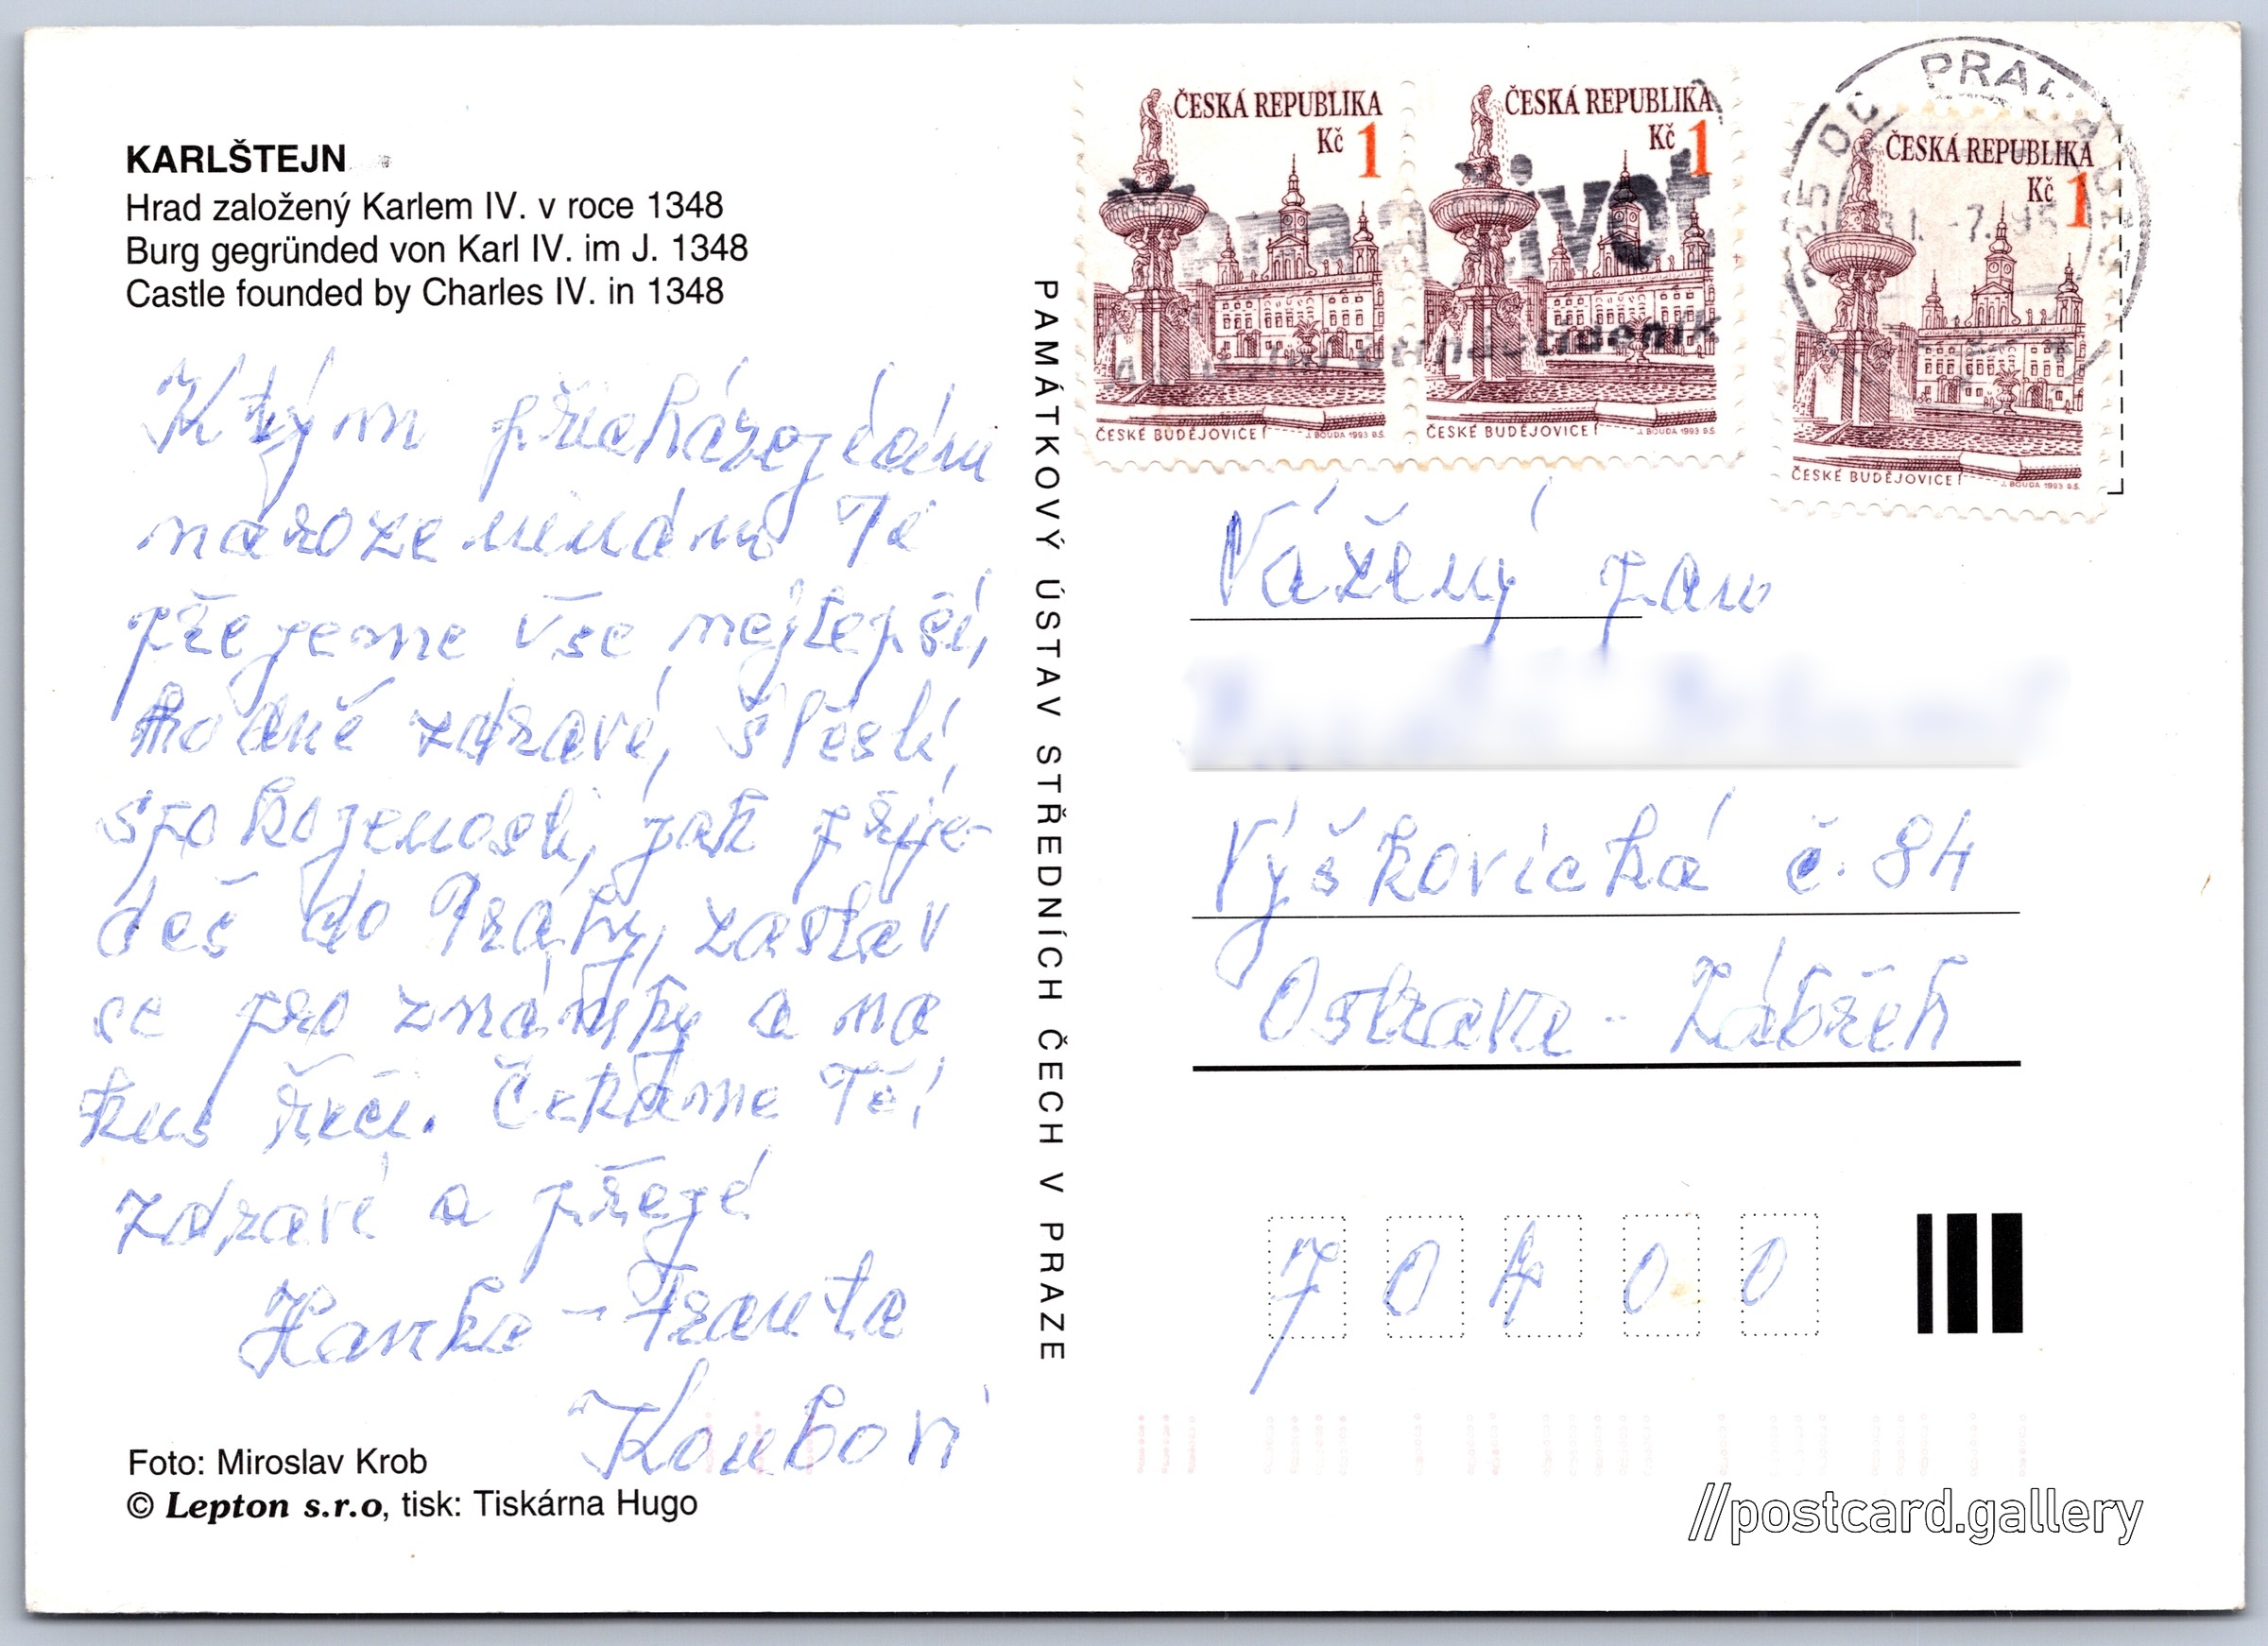 KARLŠTEJN
Hrad založený Karlem IV. v roce 1348
Burg gegründed von Karl IV. im J. 1348
Castle founded by Charles IV. in 1348
K tvým přicházejícím
narozeninám Ti
přejeme vše nejlepší,
hodně zdraví, štěstí,
spokojenosti, jak přije-
deš do Prahy, zastav
se pro známky a na
kus řeči. Čekáme Tě!
zdraví a přejí
Hanka - Franta
Koubovi
Foto: Miroslav Krob
© Lepton s.r.o, tisk: Tiskárna Hugo
PAMÁTKOVÝ ÚSTAV STŘEDNÍCH ČECH V PRAZE
ČESKÁ REPUBLIKA
Kč 1
ČESKÉ BUDĚJOVICE
J. BOUDA 1993 B.Š.
ČESKÁ REPUBLIKA
Kč 1
ČESKÉ BUDĚJOVICE
J. BOUDA 1993 B.Š.
ČESKÁ REPUBLIKA
Kč 1
ČESKÉ BUDĚJOVICE
J. BOUDA 1993 B.Š.
Vážený pan
Výškovická č. 84
Ostrava - Zábřeh
70400
//postcard.gallery